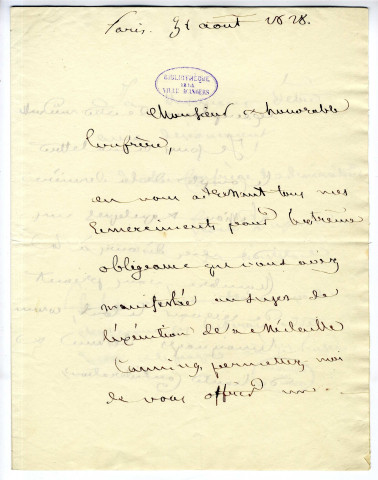 Paris. 31 août 1828.
BIBLIOTHÈQUE
DE LA
VILLE D'ANGERS
Monsieur & honorable
Confrère,
en vous adressant tous mes
remerciments pour l'extrême
obligeance que vous avez
manifestée au sujet de
l'exécution de la Médaille
Canning, permettez moi
de vous offrir une